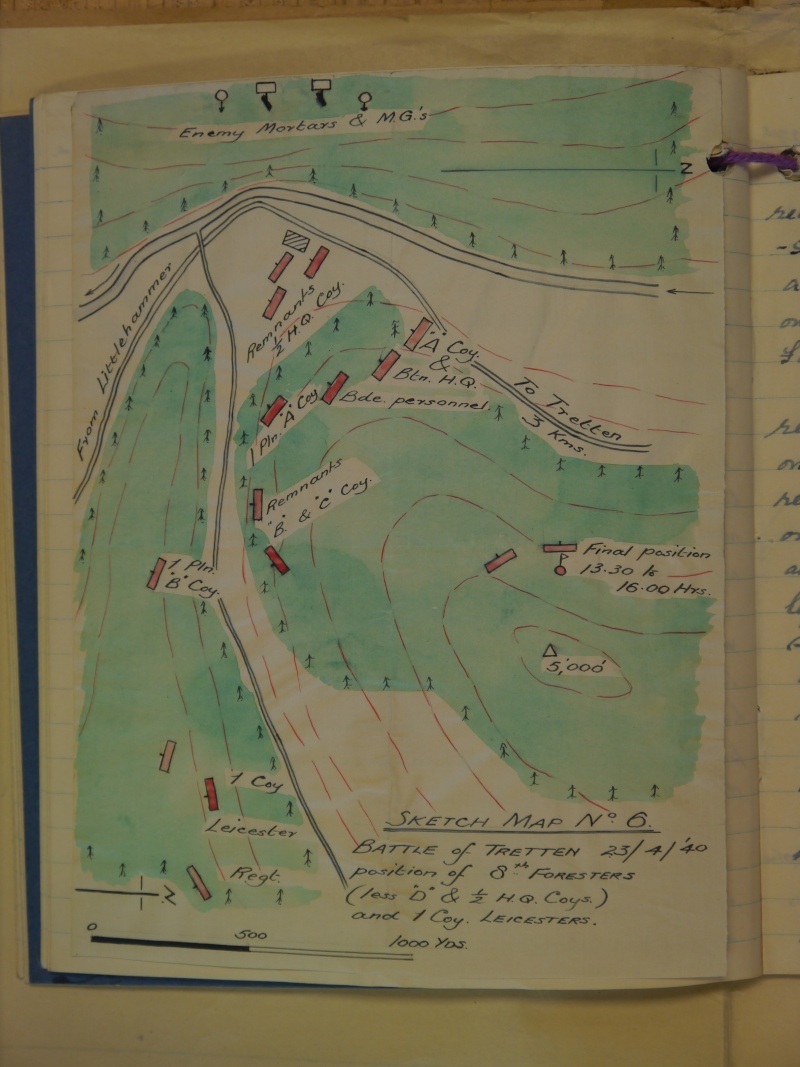 Enemy Mortars & M.G's
N
From Littlehammer
Remnants
½ H.Q. Coy.
"A" Coy.
&
Btn. H.Q.
Bde. personnel.
1 Pln. "A" Coy
To Tretten
3 Kms.
Remnants
"B" & "C" Coy.
1 Pln.
"B" Coy.
Final position
13.30 to
16.00 Hrs.
5,000'
1 Coy
Leicester
Regt.
SKETCH MAP No 6.
BATTLE of TRETTEN 23/4/'40
position of 8th FORESTERS
(less "D" & ½ H.Q. Coys.)
and 1 Coy. LEICESTERS.
N
0 500 1000 Yds.